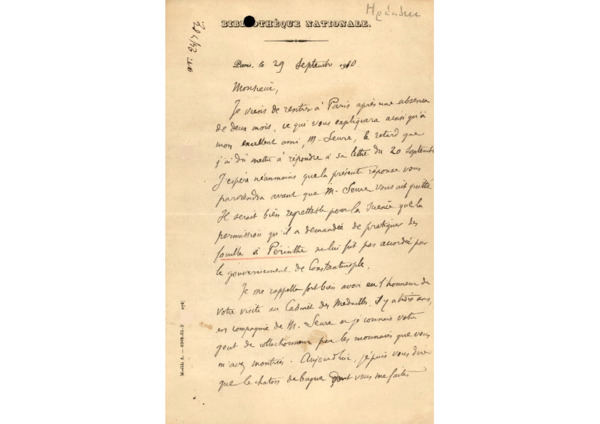 BIBLIOTHÈQUE NATIONALE.
Paris, le 29 Septembre 1910
Monsieur,
Je viens de rentrer à Paris après une absence
de deux mois, ce qui vous expliquera ainsi qu'à
mon excellent ami, M. Seure, le retard que
j'ai dû mettre à répondre à sa lettre du 20 septembre
J'espère néanmoins que la présente réponse vous
parviendra avant que M. Seure vous ait quitté.
Il serait bien regrettable pour la science que la
permission qu'il a demandée de pratiquer des
fouilles à Périnthe ne lui fut pas accordée par
le gouvernement de Constantinople.
Je me rappelle fort bien avoir eu l'honneur de
votre visite au Cabinet des Médailles, il y a trois ans,
en compagnie de M. Seure et je connais votre
goût de collectionneur par les monnaies que vous
m'avez montrées. Aujourd'hui, je puis vous dire
que le chaton de bague dont vous me faites